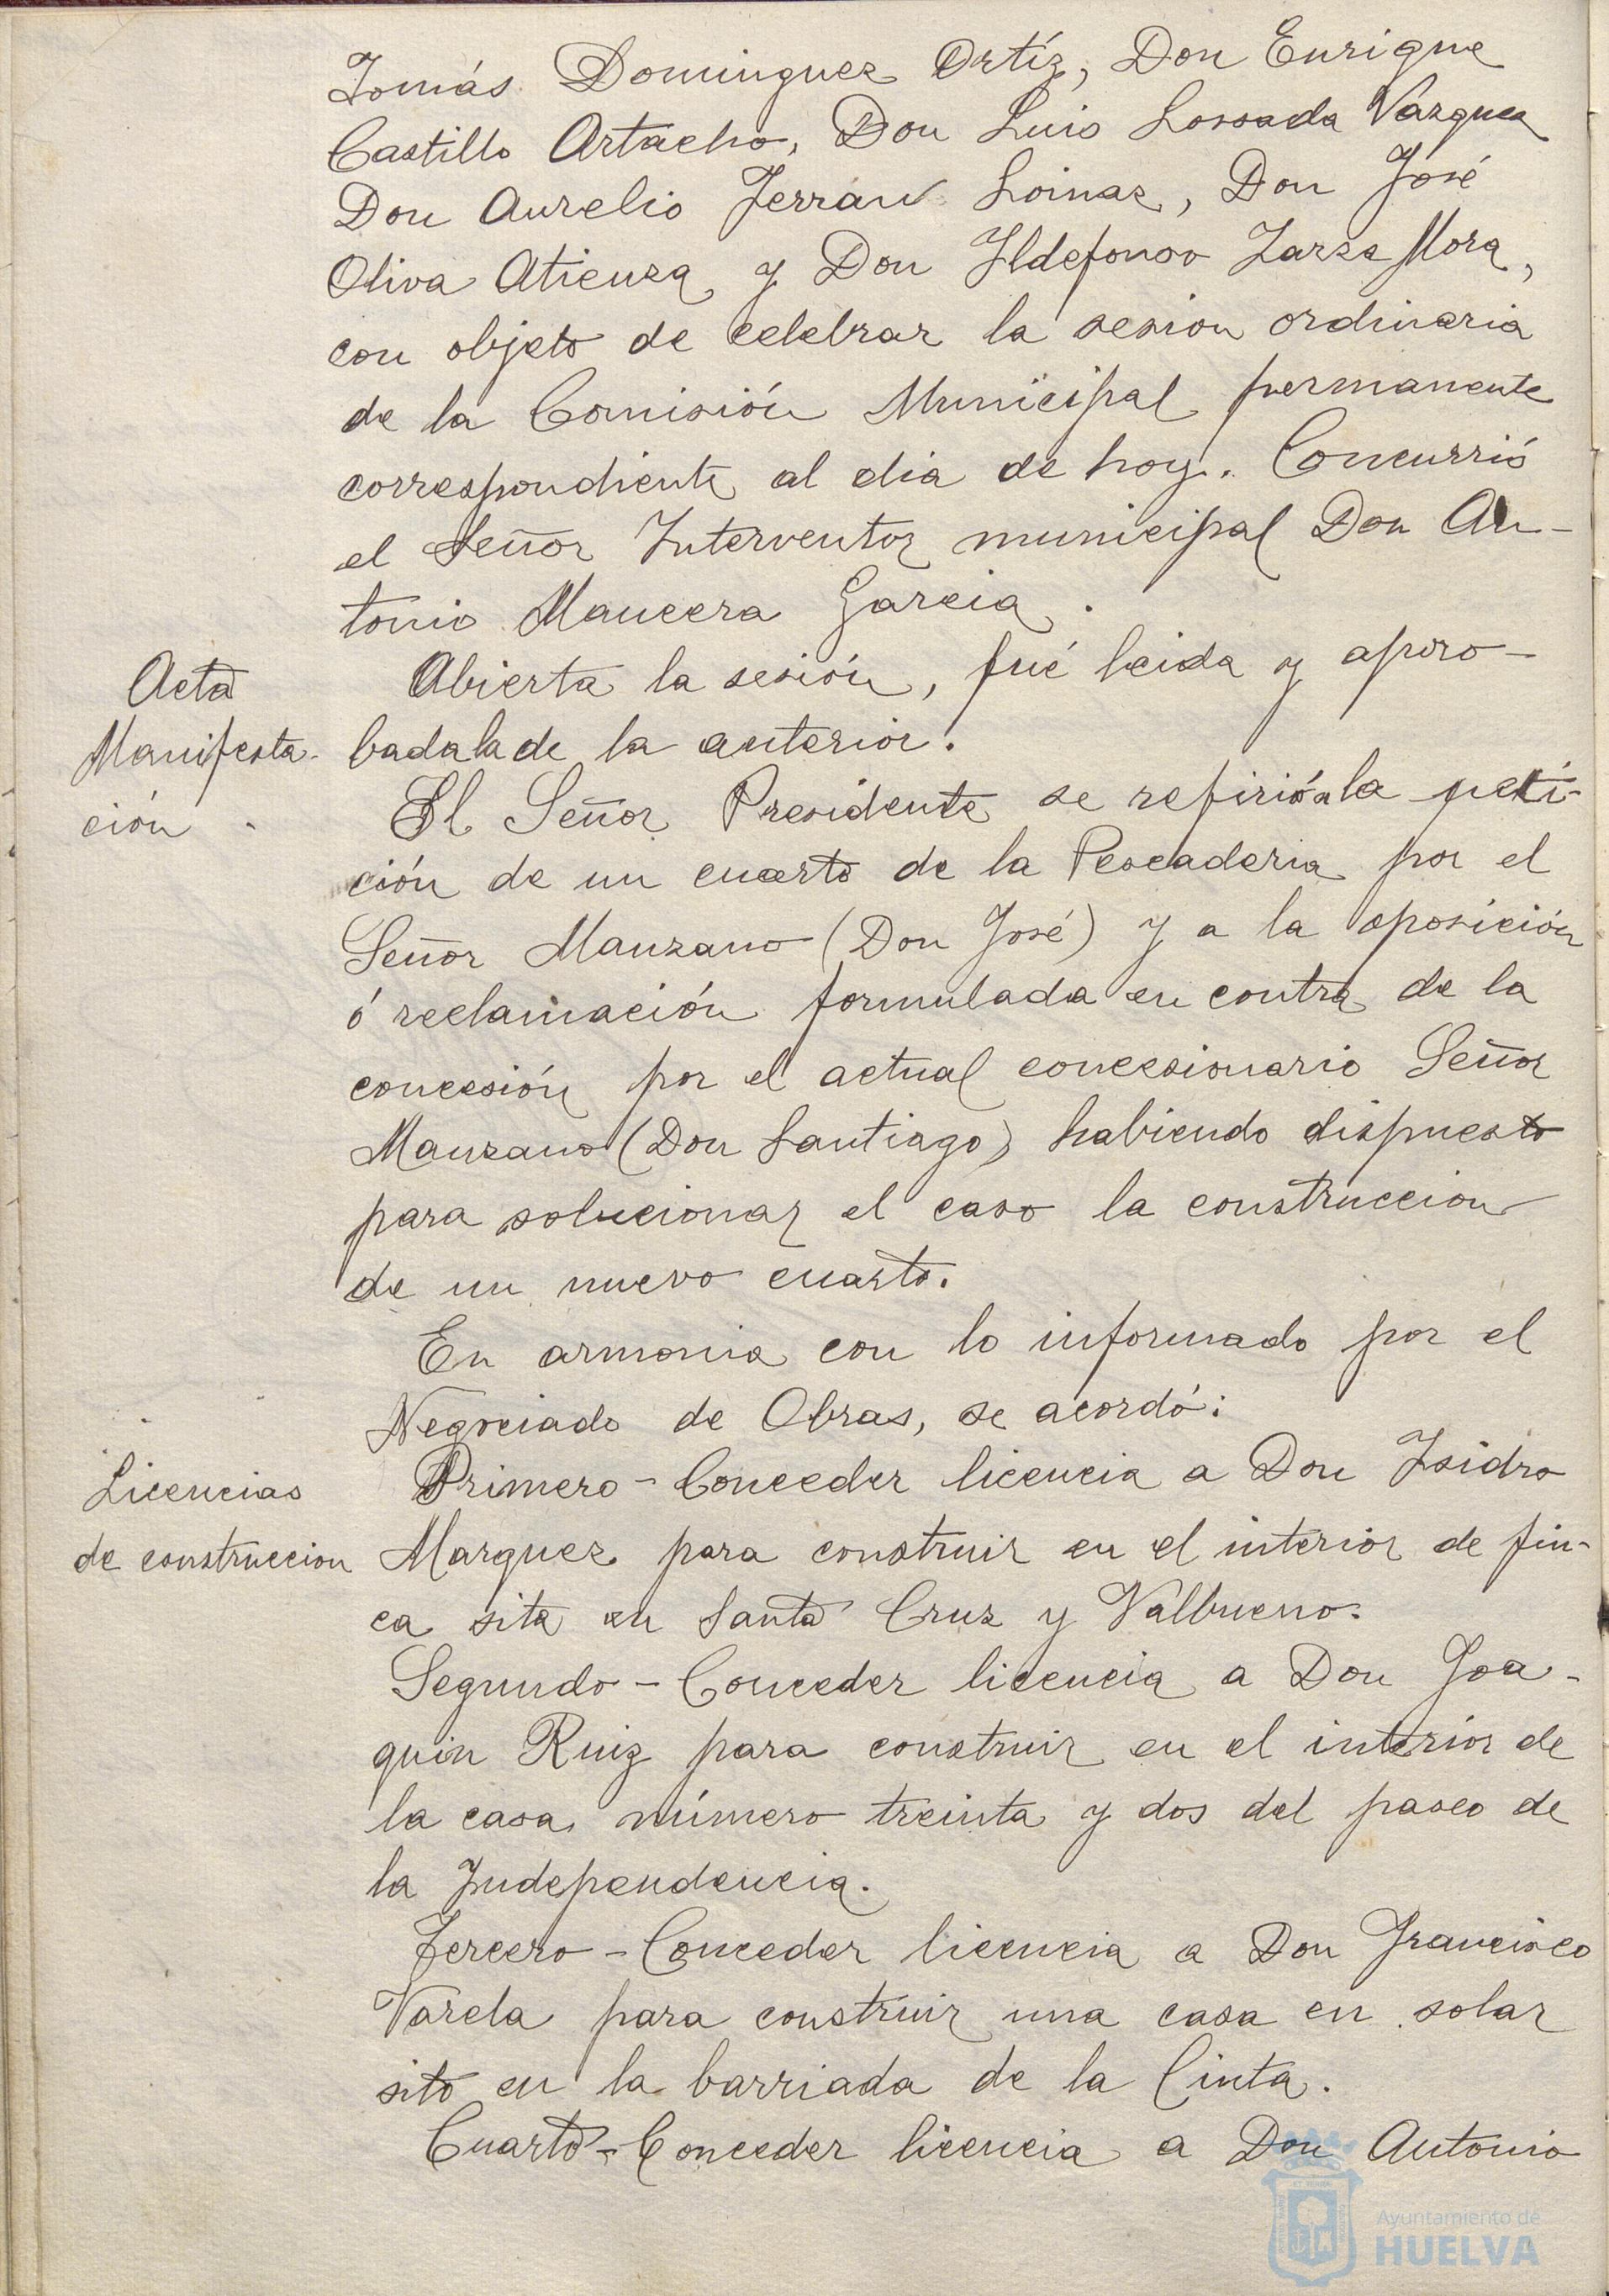 Tomás Dominguez Ortíz, Don Enrique
Castillo Artacho, Don Luis Lossada Vázquez
Don Aurelio Jerran Loinaz, Don José
Oliva Atienza y Don Ildefonso Zarza Mora,
con objeto de celebrar la sesion ordinaria
de la Comisión Municipal permanente
correspondiente al dia de hoy. Concurrió
el Señor Interventor municipal Don An-
tonio Mancera Garcia.
Acta
Abierta la sesión, fué leida y apro-
bada la de la anterior.
Manifesta-
ción
El Señor Presidente se refirió a la peti-
ción de un cuarto de la Pescaderia por el
Señor Manzano (Don José) y a la oposición
ó reclamación formulada en contra de la
concesión por el actual concesionario Señor
Manzano (Don Santiago) habiendo dispuesto
para solucionar el caso la construccion
de un nuevo cuarto.
En armonia con lo informado por el
Negociado de Obras, se acordó:
Licencias
de construccion
Primero - Conceder licencia a Don Isidro
Marquez para construir en el interior de fin-
ca sita en Santa Cruz y Valbueno.
Segundo - Conceder licencia a Don Joa-
quin Ruiz para construir en el interior de
la casa número treinta y dos del paseo de
la Independencia.
Tercero - Conceder licencia a Don Francisco
Varela para construir una casa en solar
sito en la barriada de la Cinta.
Cuarto - Conceder licencia a Don Antonio
Ayuntamiento de
HUELVA